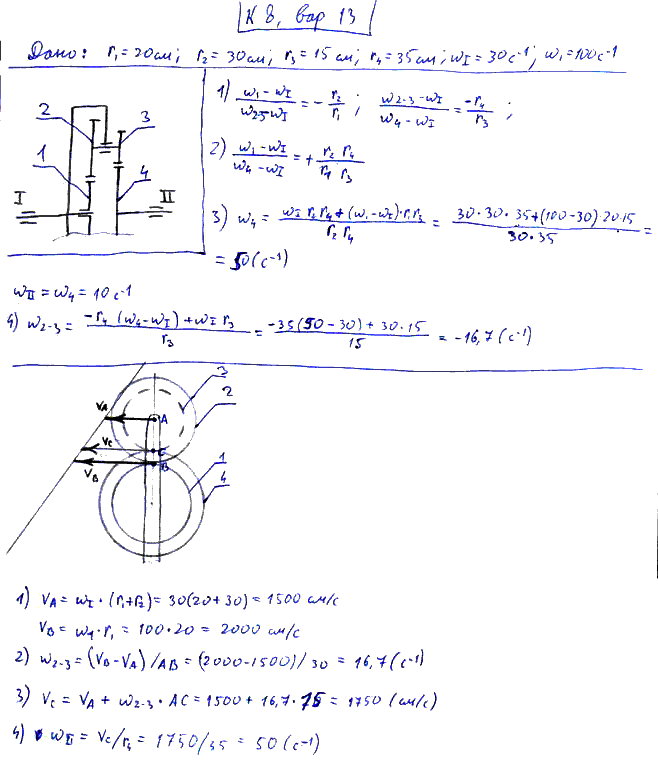 К 8, вар 13
Дано: r₁=20см; r₂=30см; r₃=15см; r₄=35см; ωI=30с⁻¹; ω₁=100с⁻¹
1) (ω₁-ωI)/(ω23-ωI) = -r₂/r₁; (ω2-3-ωI)/(ω4-ωI) = -r₄/r₃;
2) (ω₁-ωI)/(ω4-ωI) = + (r₂ r₄)/(r₁ r₃)
3) ω4 = (ωI r₂ r₄+(ω₁-ωI)·r₁r₃)/(r₂ r₄) = (30·30·35+(100-30)·20·15)/(30·35) =
= 50(с⁻¹)
2 3 1 4 I II
ωII=ω4=10с⁻¹
4) ω2-3 = (-r₄(ω4-ωI)+ωI r₃)/r₃ = (-35(50-30)+30·15)/15 = -16,7(с⁻¹)
3
2
VA A
VC C
VB B
1
4
1) VA = ωI·(r₁+r₂) = 30(20+30) = 1500 см/с
VB = ω₁·r₁ = 100·20 = 2000 см/с
2) ω2-3 = (VB-VA)/AB = (2000-1500)/30 = 16,7(с⁻¹)
3) VC = VA + ω2-3·AC = 1500+16,7·15 = 1750 (см/с)
4) ωII = VC/r₄ = 1750/35 = 50(с⁻¹)